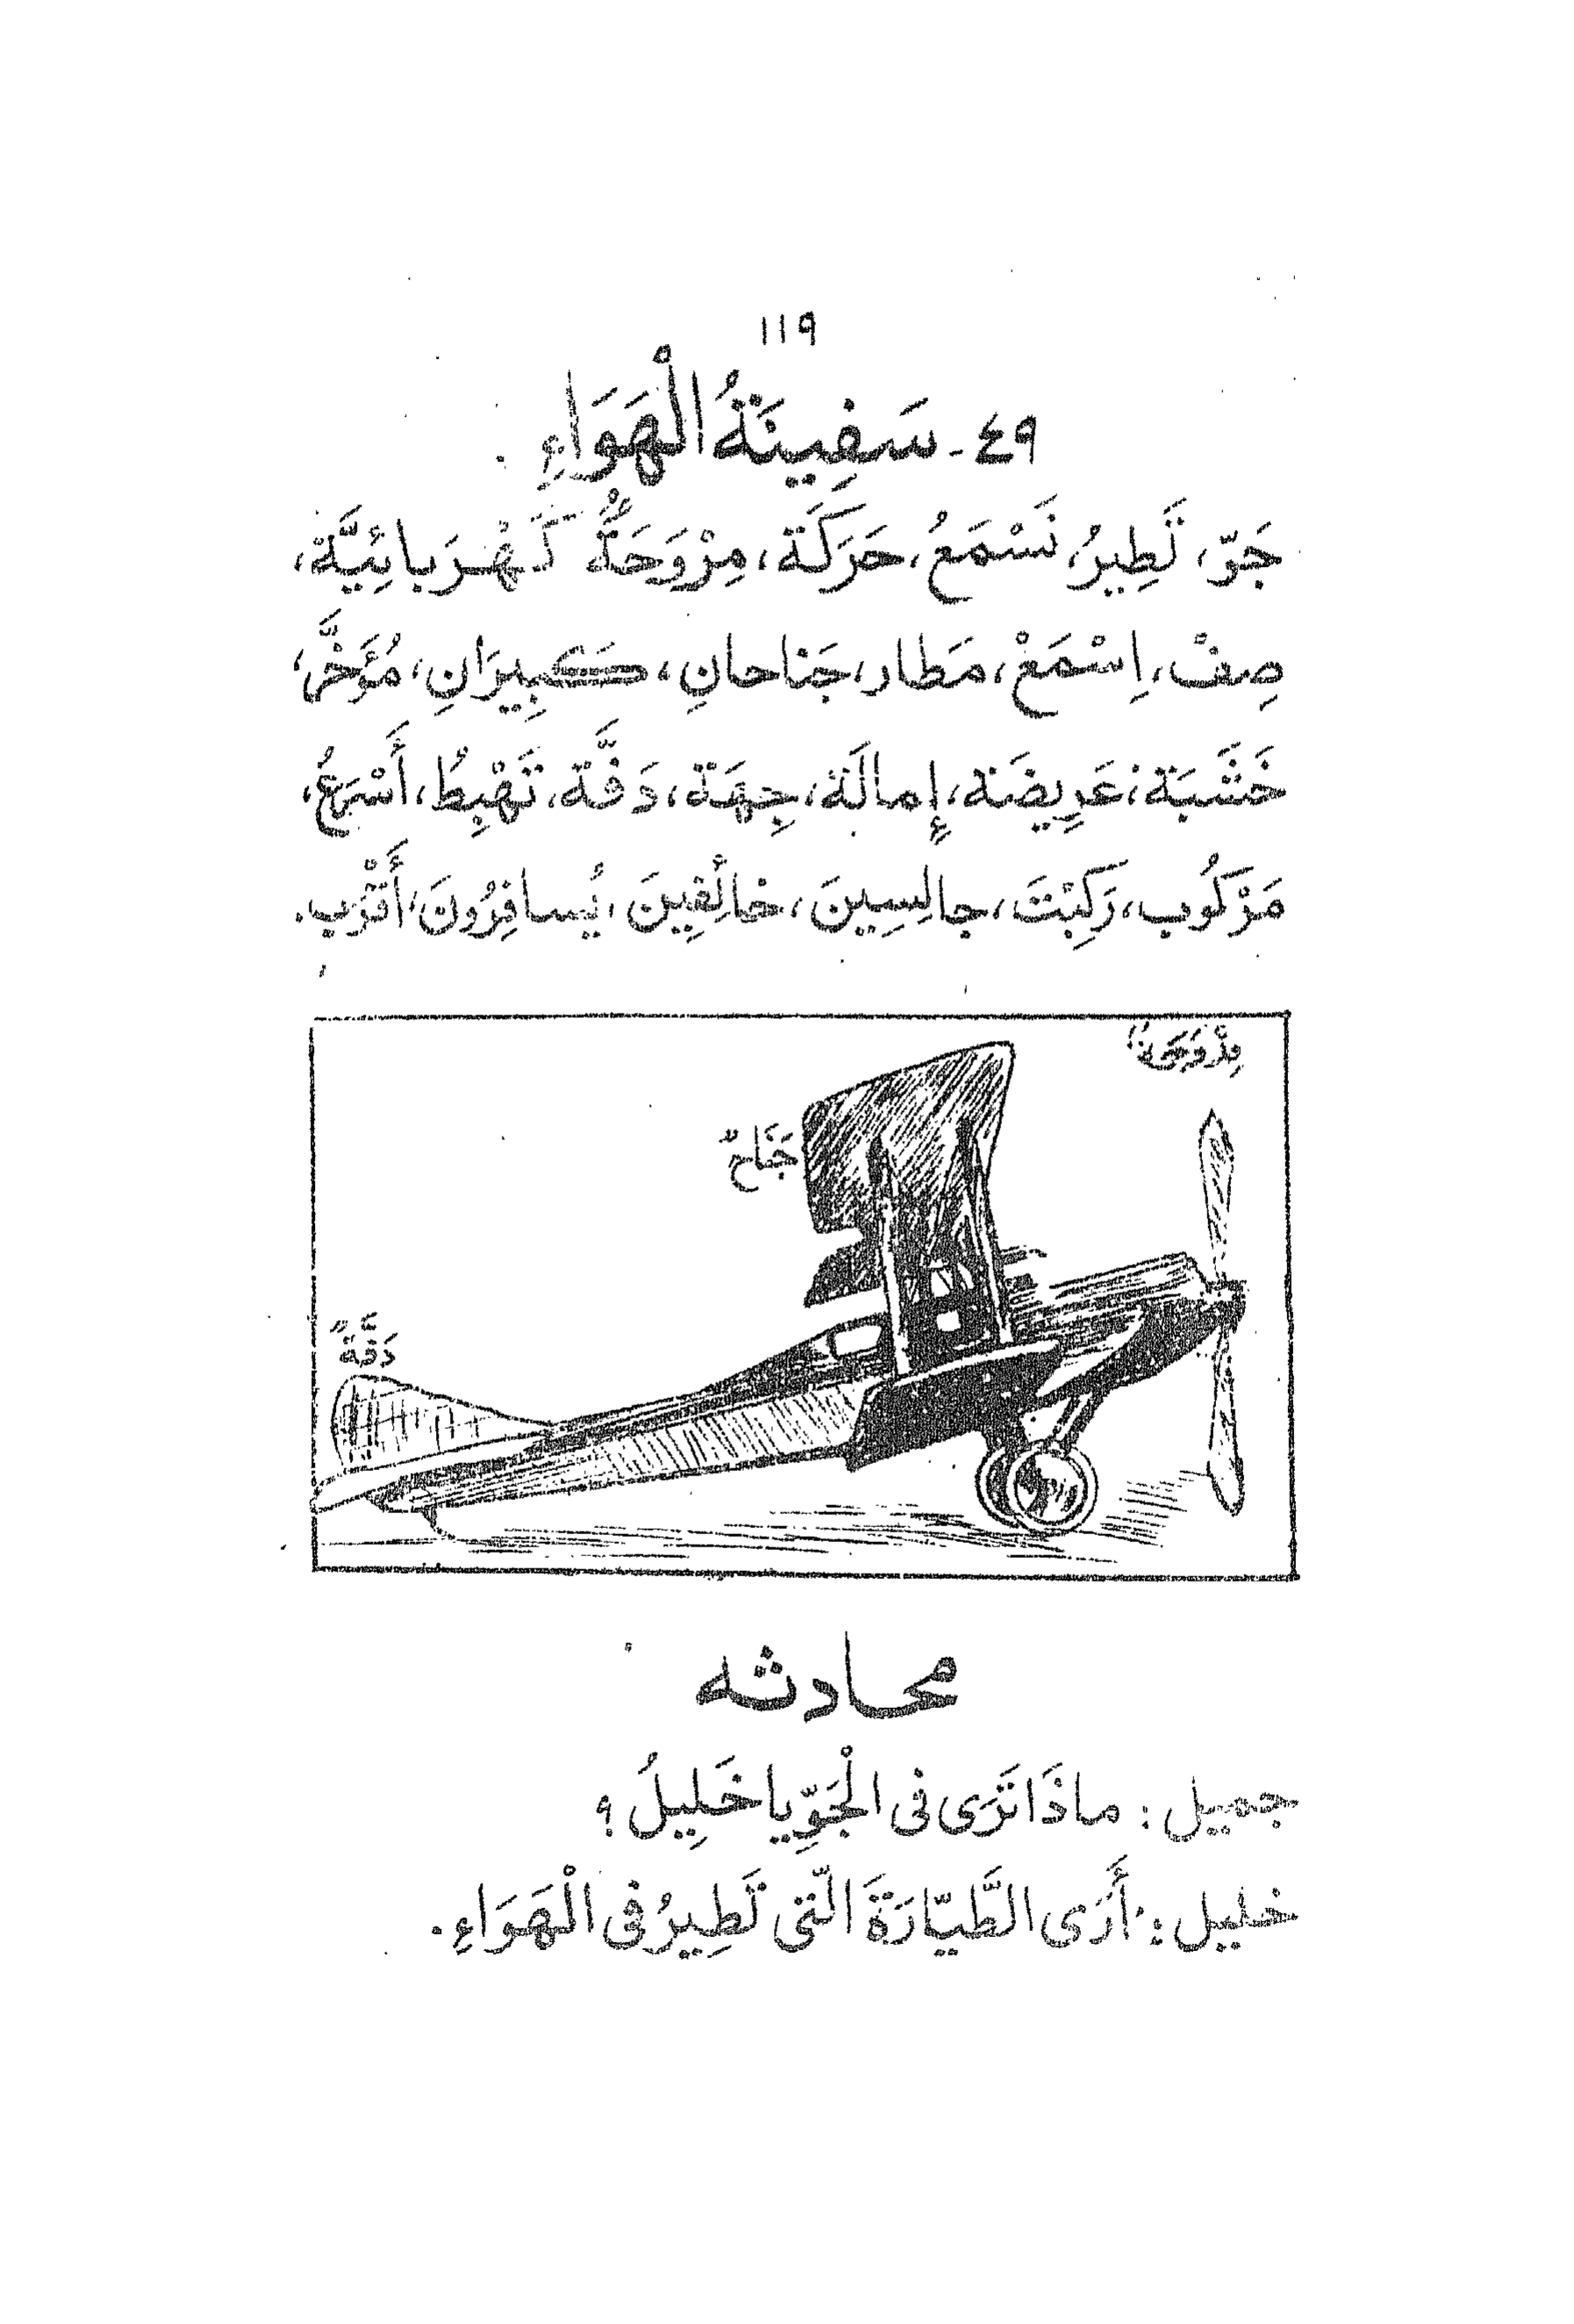 ١١٩
٤٩- سَفِينَةُ الْهَوَاءِ
جَوّ، تَطِيرُ، نَسْمَعُ، حَرَكَة، مِرْوَحَةٌ كَهْرَبائِيَّة،
صِفْ، اِسْمَعْ، مَطار، جَناحانِ، كَبِيرَانِ، مُؤَخَّر،
خَشَبَة، عَرِيضَة، إِمالَة، جِهَة، دَفَّة، تَهْبِطُ، أَسْرَعُ،
مَرْكُوب، رَكِبْتَ، جالِسِينَ، خائِفِينَ، يُسافِرُونَ، أَقْرَب.
مِرْوَحَةٌ
جَنَاحٌ
دَفَّةٌ
محادثه
جميل : ماذَا تَرَى فى الْجَوِّ يا خَلِيلُ ؟
خليل : أَرَى الطَّيّارَةَ الّتى تَطِيرُ فى الْهَوَاءِ.